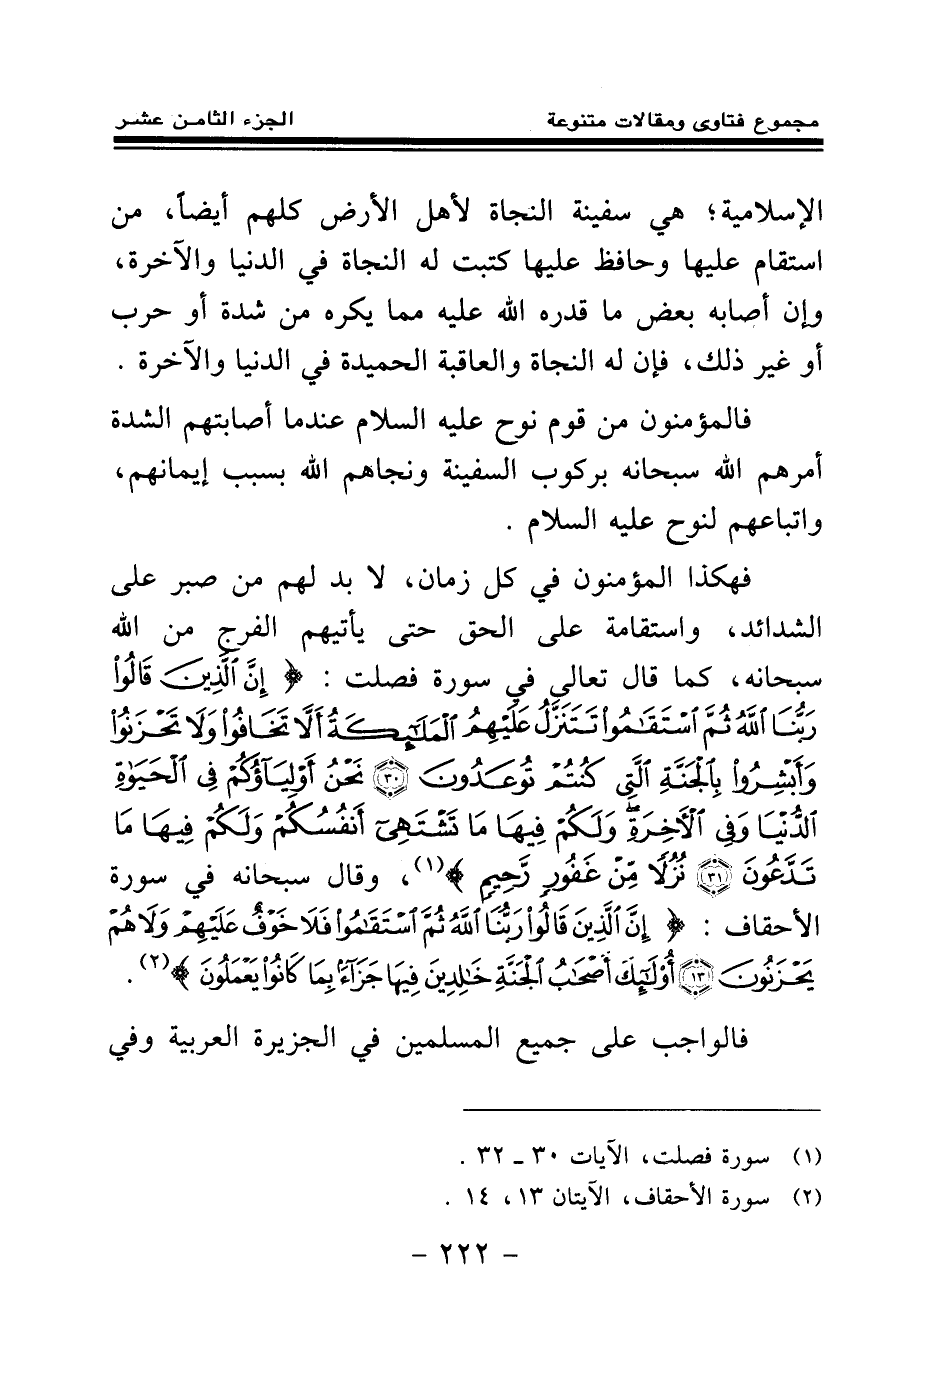 مجموع فتاوى ومقالات متنوعة الجزء الثامن عشر
الإسلامية؛ هي سفينة النجاة لأهل الأرض كلهم أيضاً، من
استقام عليها وحافظ عليها كتبت له النجاة في الدنيا والآخرة،
وإن أصابه بعض ما قدره الله عليه مما يكره من شدة أو حرب
أو غير ذلك، فإن له النجاة والعاقبة الحميدة في الدنيا والآخرة .
فالمؤمنون من قوم نوح عليه السلام عندما أصابتهم الشدة
أمرهم الله سبحانه بركوب السفينة ونجاهم الله بسبب إيمانهم،
واتباعهم لنوح عليه السلام .
فهكذا المؤمنون في كل زمان، لا بد لهم من صبر على
الشدائد، واستقامة على الحق حتى يأتيهم الفرج من الله
سبحانه، كما قال تعالى في سورة فصلت : ﴿ إِنَّ ٱلَّذِينَ قَالُوا۟
رَبُّنَا ٱللَّهُ ثُمَّ ٱسْتَقَٰمُوا۟ تَتَنَزَّلُ عَلَيْهِمُ ٱلْمَلَٰٓئِكَةُ أَلَّا تَخَافُوا۟ وَلَا تَحْزَنُوا۟
وَأَبْشِرُوا۟ بِٱلْجَنَّةِ ٱلَّتِى كُنتُمْ تُوعَدُونَ ٣٠ نَحْنُ أَوْلِيَآؤُكُمْ فِى ٱلْحَيَوٰةِ
ٱلدُّنْيَا وَفِى ٱلْءَاخِرَةِ ۖ وَلَكُمْ فِيهَا مَا تَشْتَهِىٓ أَنفُسُكُمْ وَلَكُمْ فِيهَا مَا
تَدَّعُونَ ٣١ نُزُلًا مِّنْ غَفُورٍ رَّحِيمٍ ﴾(١)، وقال سبحانه في سورة
الأحقاف : ﴿ إِنَّ ٱلَّذِينَ قَالُوا۟ رَبُّنَا ٱللَّهُ ثُمَّ ٱسْتَقَٰمُوا۟ فَلَا خَوْفٌ عَلَيْهِمْ وَلَا هُمْ
يَحْزَنُونَ ١٣ أُو۟لَٰٓئِكَ أَصْحَٰبُ ٱلْجَنَّةِ خَٰلِدِينَ فِيهَا جَزَآءًۢ بِمَا كَانُوا۟ يَعْمَلُونَ ﴾(٢) .
فالواجب على جميع المسلمين في الجزيرة العربية وفي
(١) سورة فصلت، الآيات ٣٠ ـ ٣٢ .
(٢) سورة الأحقاف، الآيتان ١٣، ١٤ .
- ٢٢٢ -